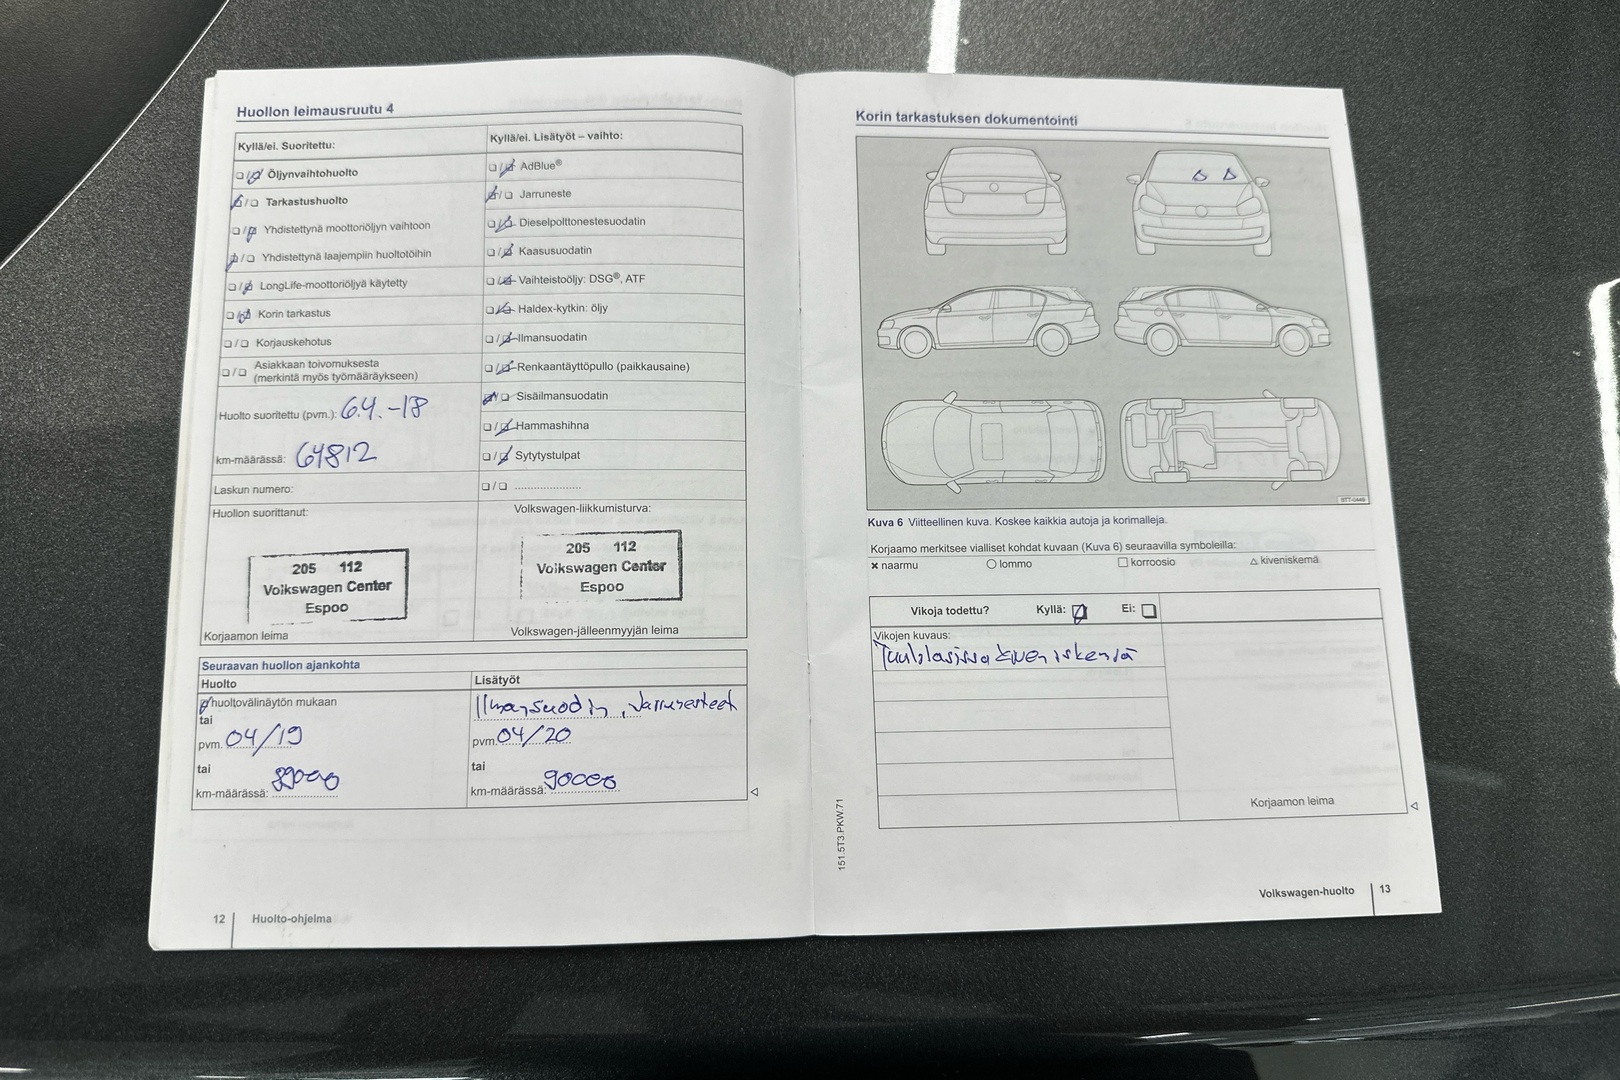 Huollon leimausruutu 4
Kyllä/ei. Suoritettu:
Öljynvaihtohuolto
Tarkastushuolto
Yhdistettynä moottoriöljyn vaihtoon
Yhdistettynä laajempiin huoltotöihin
LongLife-moottoriöljyä käytetty
Korin tarkastus
Korjauskehotus
Asiakkaan toivomuksesta
(merkintä myös työmääräykseen)
Huolto suoritettu (pvm.): 6.4.-18
km-määrässä: 64812
Laskun numero:
Huollon suorittanut:
205 112
Volkswagen Center
Espoo
Korjaamon leima
Kyllä/ei. Lisätyöt – vaihto:
AdBlue®
Jarruneste
Dieselpolttonestesuodatin
Kaasusuodatin
Vaihteistoöljy: DSG®, ATF
Haldex-kytkin: öljy
Ilmansuodatin
Renkaantäyttöpullo (paikkausaine)
Sisäilmansuodatin
Hammashihna
Sytytystulpat
Volkswagen-liikkumisturva:
205 112
Volkswagen Center
Espoo
Volkswagen-jälleenmyyjän leima
Seuraavan huollon ajankohta
Huolto
huoltovälinäytön mukaan
tai
pvm. 04/19
tai
km-määrässä: 89000
Lisätyöt
Ilmansuodin, Jarrunesteet
pvm. 04/20
tai
km-määrässä: 90000
12 Huolto-ohjelma
Korin tarkastuksen dokumentointi
Kuva 6 Viitteellinen kuva. Koskee kaikkia autoja ja korimalleja.
Korjaamo merkitsee vialliset kohdat kuvaan (Kuva 6) seuraavilla symboleilla:
naarmu lommo korroosio kiveniskemä
Vikoja todettu? Kyllä: Ei:
Vikojen kuvaus:
Tuulilasissa kiveniskemiä
Korjaamon leima
151.5T3.PKW.71
Volkswagen-huolto 13